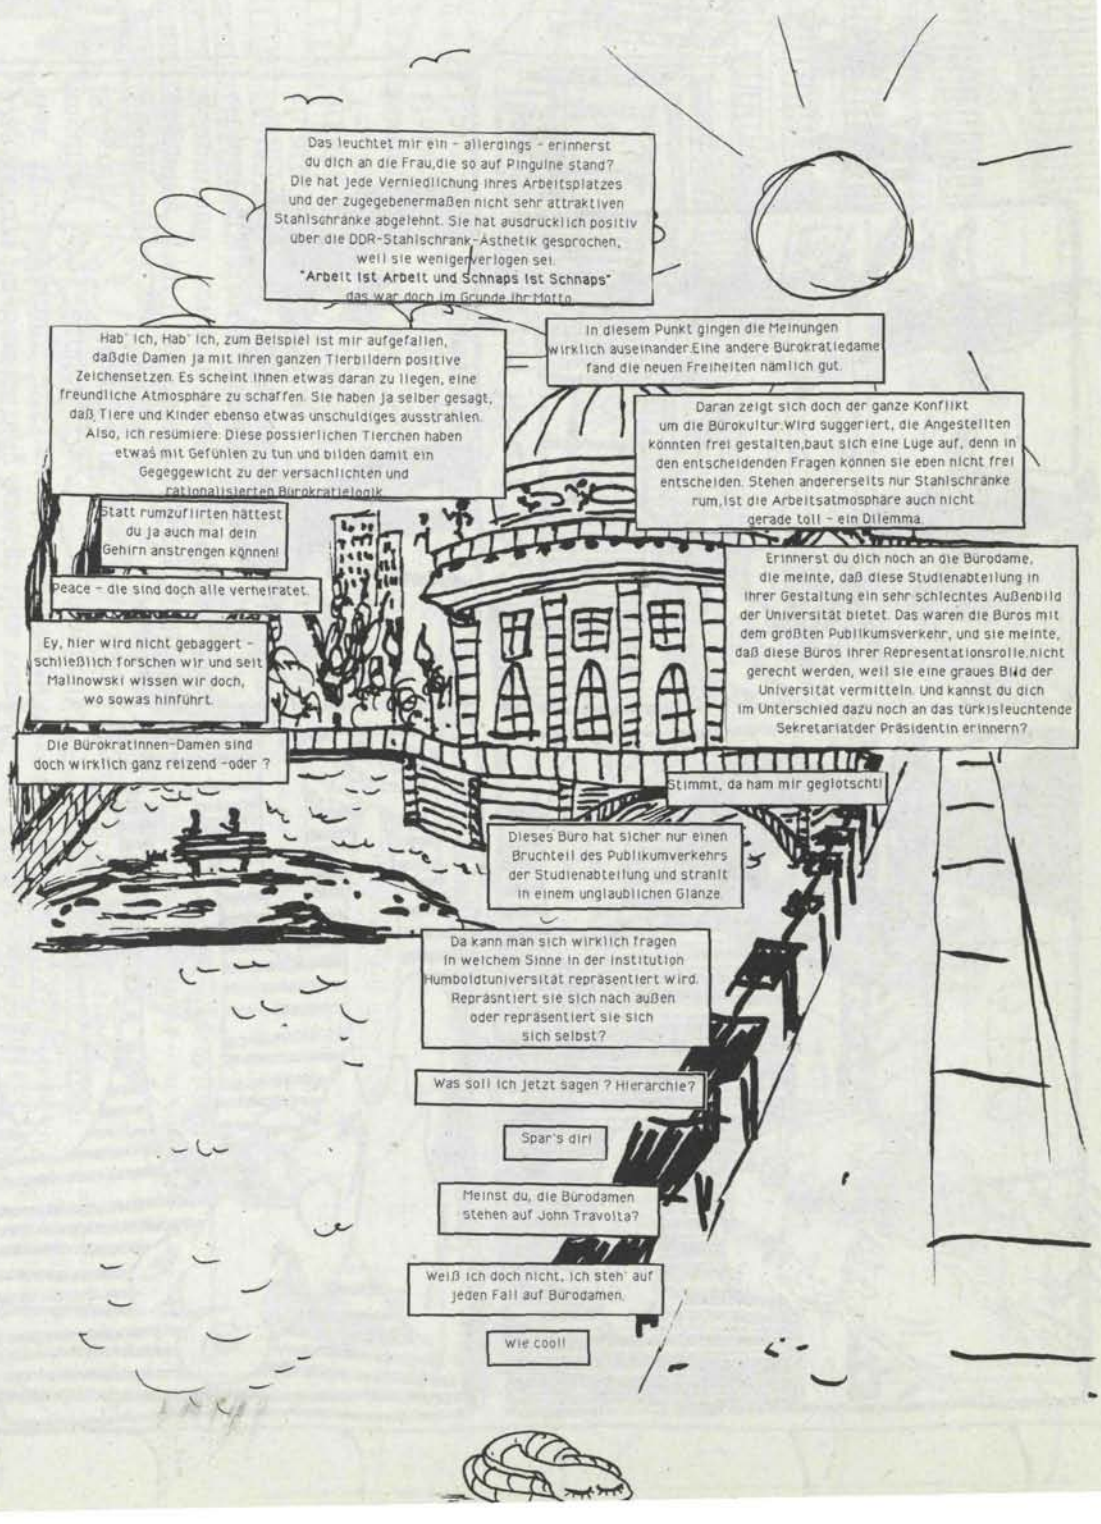 Das leuchtet mir ein - allerdings - erinnerst
du dich an die Frau,die so auf Pinguine stand?
Die hat jede Verniedlichung ihres Arbeitsplatzes
und der zugegebenermaßen nicht sehr attraktiven
Stahlschränke abgelehnt. Sie hat ausdrücklich positiv
über die DDR-Stahlschrank-Ästhetik gesprochen,
weil sie wenigerverlogen sei.
"Arbeit ist Arbeit und Schnaps ist Schnaps"
das war doch im Grunde ihr Motto.
Hab' ich, Hab' ich, zum Beispiel ist mir aufgefallen,
daßdie Damen ja mit ihren ganzen Tierbildern positive
Zeichensetzen. Es scheint ihnen etwas daran zu liegen, eine
freundliche Atmosphäre zu schaffen. Sie haben ja selber gesagt,
daß Tiere und Kinder ebenso etwas unschuldiges ausstrahlen.
Also, ich resümiere: Diese possierlichen Tierchen haben
etwas mit Gefühlen zu tun und bilden damit ein
Gegeggewicht zu der versachlichten und
rationalisierten Bürokratielogik.
In diesem Punkt gingen die Meinungen
wirklich auseinander.Eine andere Bürokratiedame
fand die neuen Freiheiten nämlich gut.
Daran zeigt sich doch der ganze Konflikt
um die Bürokultur.Wird suggeriert, die Angestellten
könnten frei gestalten,baut sich eine Lüge auf, denn in
den entscheidenden Fragen können sie eben nicht frei
entscheiden. Stehen andererseits nur Stahlschränke
rum,ist die Arbeitsatmosphäre auch nicht
gerade toll - ein Dilemma.
Statt rumzuflirten hättest
du ja auch mal dein
Gehirn anstrengen können!
Peace - die sind doch alle verheiratet.
Ey, hier wird nicht gebaggert -
schließlich forschen wir und seit
Malinowski wissen wir doch,
wo sowas hinführt.
Die Bürokratinnen-Damen sind
doch wirklich ganz reizend -oder ?
Erinnerst du dich noch an die Bürodame,
die meinte, daß diese Studienabteilung in
ihrer Gestaltung ein sehr schlechtes Außenbild
der Universität bietet. Das waren die Büros mit
dem größten Publikumsverkehr, und sie meinte,
daß diese Büros ihrer Representationsrolle,nicht
gerecht werden, weil sie eine graues Bild der
Universität vermitteln. Und kannst du dich
im Unterschied dazu noch an das türkisleuchtende
Sekretariatder Präsidentin erinnern?
Stimmt, da ham mir geglotscht!
Dieses Büro hat sicher nur einen
Bruchteil des Publikumverkehrs
der Studienabteilung und strahlt
in einem unglaublichen Glanze.
Da kann man sich wirklich fragen
in welchem Sinne in der Institution
Humboldtuniversität repräsentiert wird.
Repräsntiert sie sich nach außen
oder repräsentiert sie sich
sich selbst?
Was soll ich jetzt sagen ? Hierarchie?
Spar's dir!
Meinst du, die Bürodamen
stehen auf John Travolta?
Weiß ich doch nicht, ich steh' auf
jeden Fall auf Bürodamen.
Wie cool!